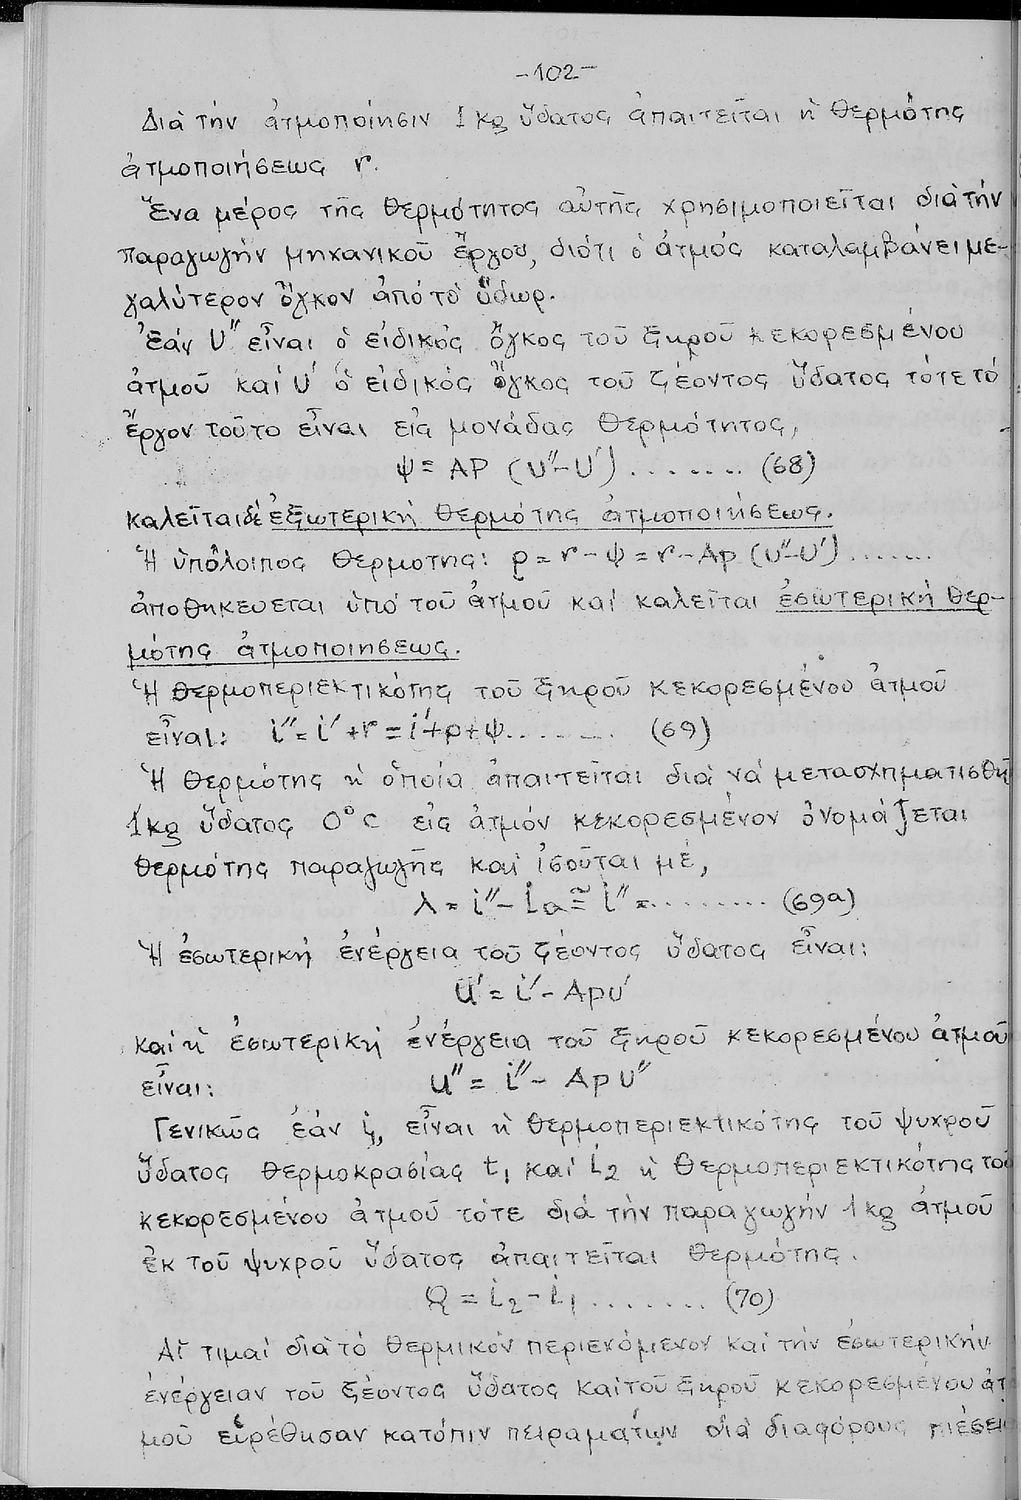 -102-
Διὰ τήν ἀτμοποίησιν 1 kg ὕδατος ἀπαιτεῖται ἡ θερμότης
ἀτμοποιήσεως r.
Ἕνα μέρος τῆς θερμότητος αὐτῆς χρησιμοποιεῖται διὰ τήν
παραγωγήν μηχανικοῦ ἔργου, διότι ὁ ἀτμός καταλαμβάνει με-
γαλύτερον ὄγκον ἀπό τό ὕδωρ.
Ἐάν υ″ εἶναι ὁ εἰδικός ὄγκος τοῦ ξηροῦ κεκορεσμένου
ἀτμοῦ καί υ′ ὁ εἰδικός ὄγκος τοῦ ζέοντος ὕδατος τότε τό
ἔργον τοῦτο εἶναι εἰς μονάδας θερμότητος,
ψ = AP (υ″-υ′) ........ (68)
καλεῖται δέ ἐξωτερική θερμότης ἀτμοποιήσεως.
Ἡ ὑπόλοιπος θερμοτης: ρ = r - ψ = r - Ap (υ″-υ′) .......
ἀποθηκευεται ὑπό τοῦ ἀτμοῦ καί καλεῖται ἐσωτερική θερ-
μότης ἀτμοποιησεως.
Ἡ θερμοπεριεκτικότης τοῦ ξηροῦ κεκορεσμένου ἀτμοῦ
εἶναι: i″ = i′ + r = i′ + ρ + ψ ........ (69)
Ἡ θερμότης ἡ ὁποία ἀπαιτεῖται διά νά μετασχηματισθῇ
1 kg ὕδατος 0°C εἰς ἀτμόν κεκορεσμένον ὀνομάζεται
θερμότης παραγωγῆς καί ἰσοῦται μέ,
λ = i″ - ia ≅ i″ = ......... (69α)
Ἡ ἐσωτερική ἐνέργεια τοῦ ζέοντος ὕδατος εἶναι:
u′ = i′ - Apυ′
καί ἡ ἐσωτερική ἐνέργεια τοῦ ξηροῦ κεκορεσμένου ἀτμοῦ
εἶναι: u″ = i″ - Apυ″
Γενικῶς ἐάν i₁, εἶναι ἡ θερμοπεριεκτικότης τοῦ ψυχροῦ
ὕδατος θερμοκρασίας t₁ καί i₂ ἡ θερμοπεριεκτικότης τοῦ
κεκορεσμένου ἀτμοῦ τότε διά τὴν παραγωγήν 1 kg ἀτμοῦ
ἐκ τοῦ ψυχροῦ ὕδατος ἀπαιτεῖται θερμότης.
Q = i₂ - i₁ ....... (70)
Αἱ τιμαί διά τό θερμικόν περιεχόμενον καί τήν ἐσωτερικήν
ἐνέργειαν τοῦ ζέοντος ὕδατος καί τοῦ ξηροῦ κεκορεσμένου ἀτ
μοῦ εὑρέθησαν κατόπιν πειραμάτων διά διαφόρους πιέσει